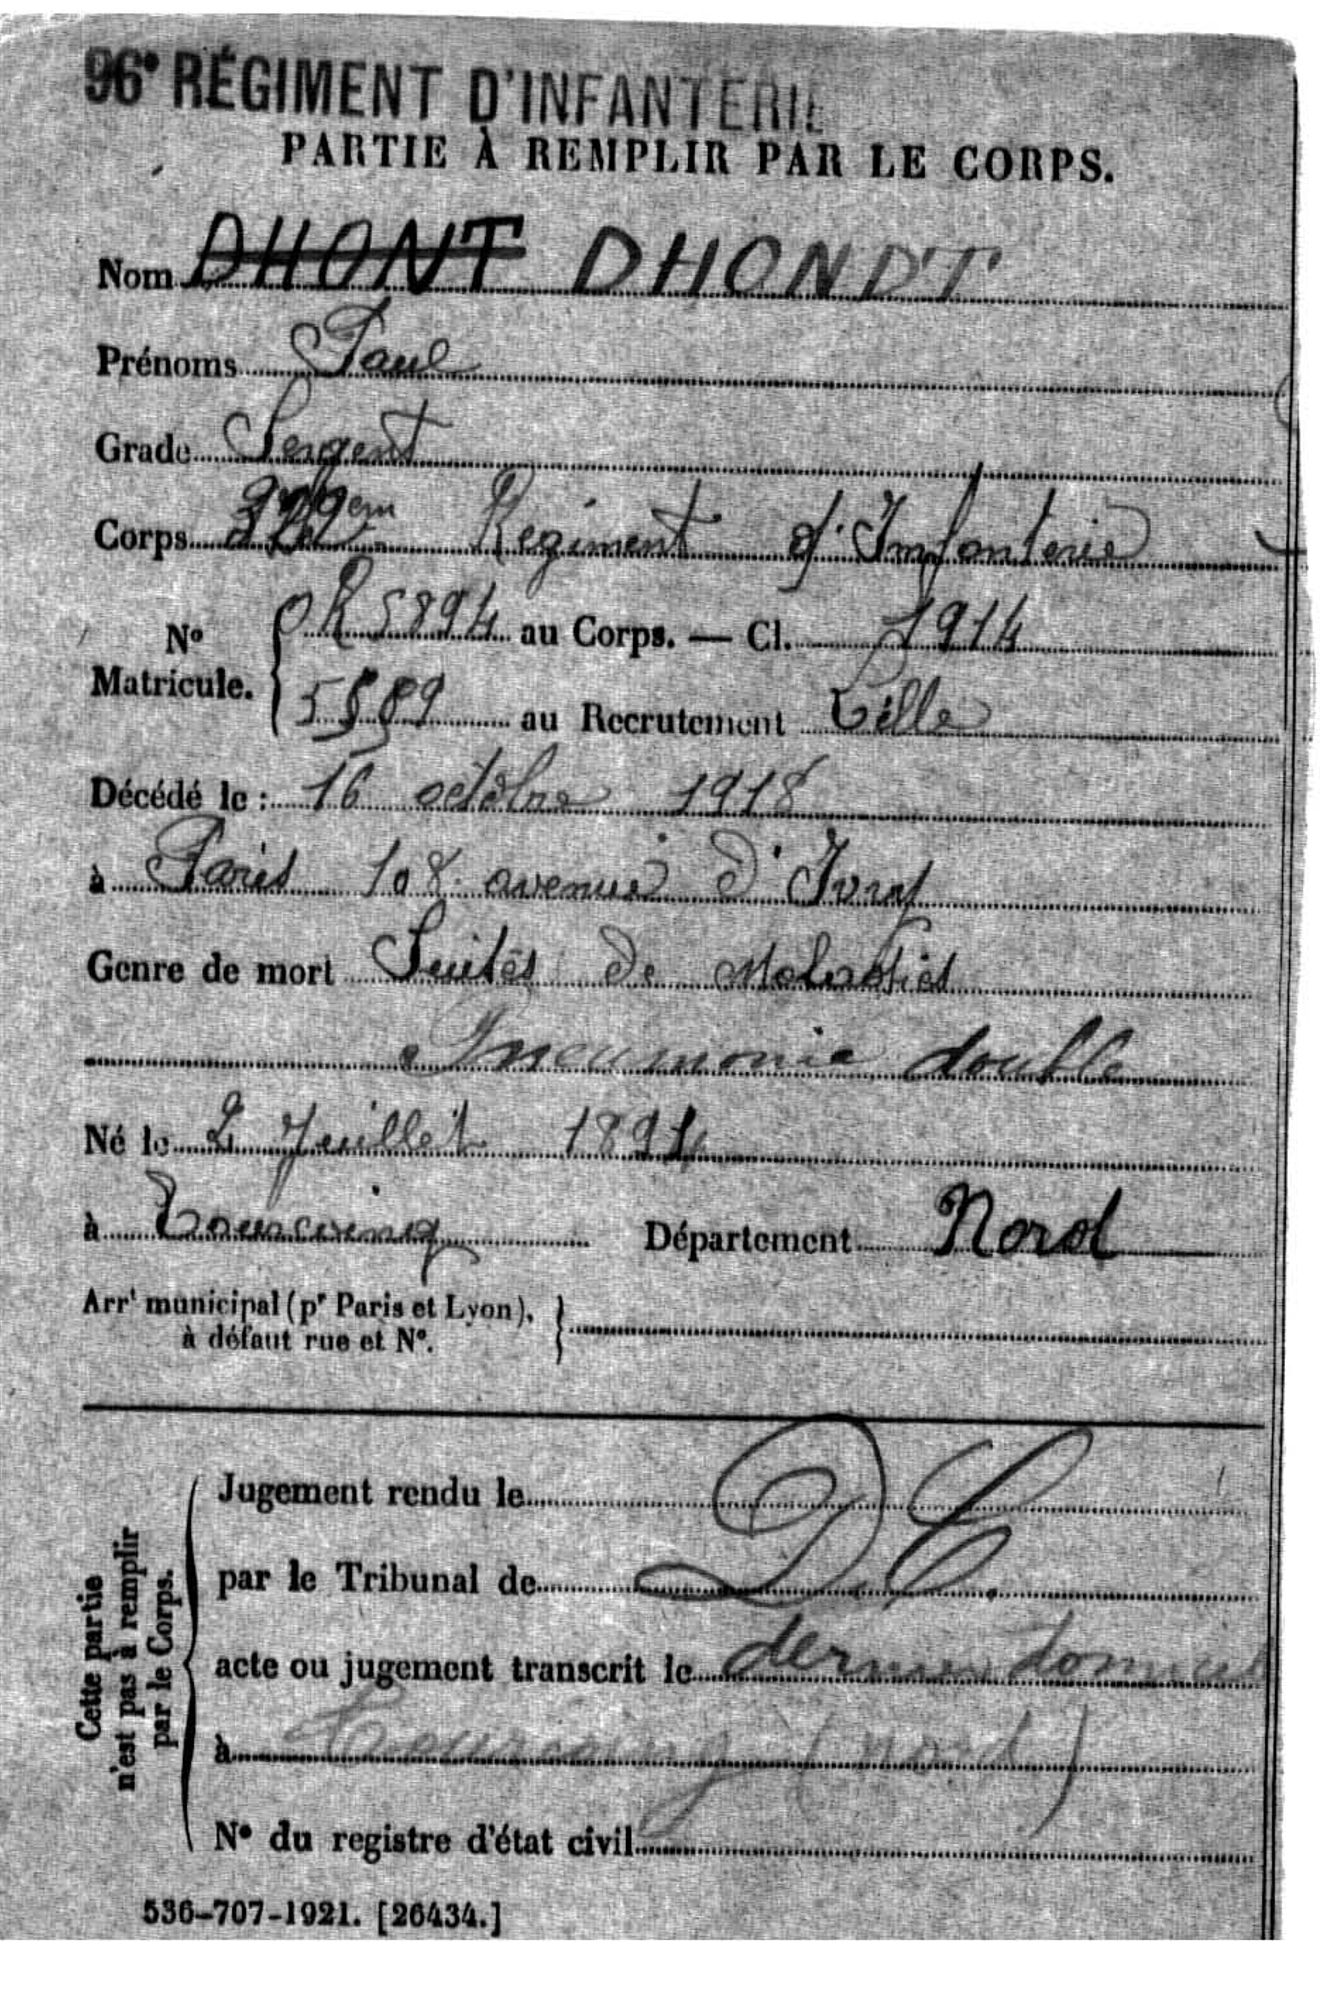 96e RÉGIMENT D'INFANTERIE
PARTIE À REMPLIR PAR LE CORPS.
Nom DHONT DHONDT
Prénoms Paul
Grade Sergent
Corps Régiment d'Infanterie
No Matricule. 5894 au Corps. — Cl. 1914
5589 au Recrutement Lille
Décédé le : 16 octobre 1918
à Paris 108 avenue d'Ivry
Genre de mort Suites de Maladies
Pneumonie double
Né le 2 Juillet 1894
à Tourcoing Département Nord
Arrt municipal (pr Paris et Lyon),
à défaut rue et No.
Cette partie
n'est pas à remplir
par le Corps.
Jugement rendu le
par le Tribunal de D C.
acte ou jugement transcrit le dernier domicile
à Tourcoing (nord)
No du registre d'état civil
536-707-1921. [26434.]